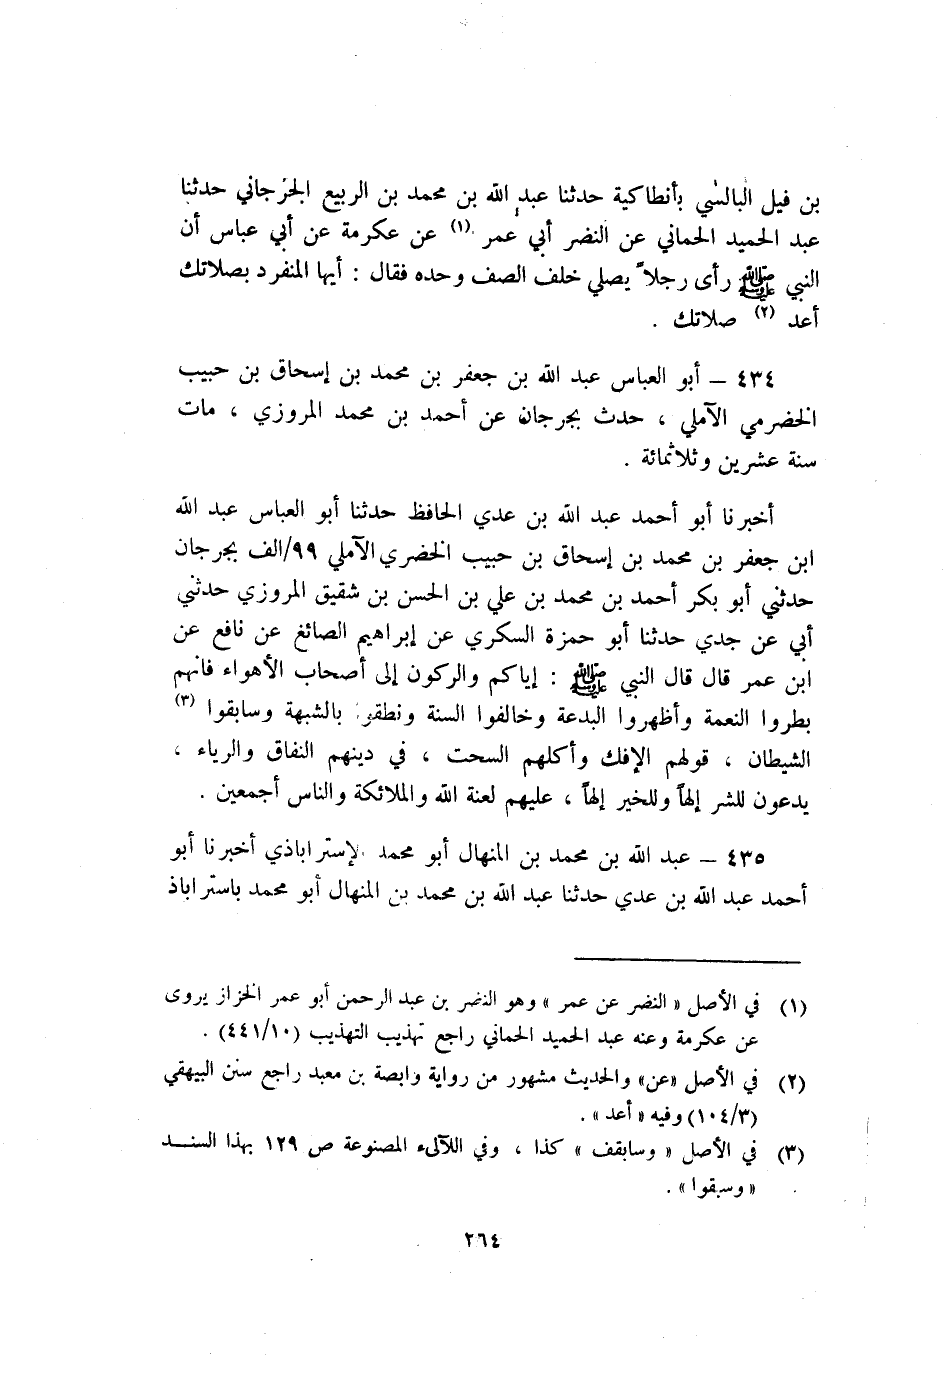 بن فيل البالسي بأنطاكية حدثنا عبد الله بن محمد بن الربيع الجرجاني حدثنا
عبد الحميد الحماني عن النضر أبي عمر (١) عن عكرمة عن أبي عباس أن
النبي ﷺ رأى رجلاً يصلي خلف الصف وحده فقال : أيها المنفرد بصلاتك
أعد (٢) صلاتك .
٤٣٤ – أبو العباس عبد الله بن جعفر بن محمد بن إسحاق بن حبيب
الخضرمي الآملي ، حدث بجرجان عن أحمد بن محمد المروزي ، مات
سنة عشرين وثلاثمائة .
أخبرنا أبو أحمد عبد الله بن عدي الحافظ حدثنا أبو العباس عبد الله
ابن جعفر بن محمد بن إسحاق بن حبيب الخضري الآملي ٩٩/الف بجرجان
حدثني أبو بكر أحمد بن محمد بن علي بن الحسن بن شقيق المروزي حدثني
أبي عن جدي حدثنا أبو حمزة السكري عن إبراهيم الصائغ عن نافع عن
ابن عمر قال قال النبي ﷺ : إياكم والركون إلى أصحاب الأهواء فانهم
بطروا النعمة وأظهروا البدعة وخالفوا السنة ونطقوا بالشبهة وسابقوا (٣)
الشيطان ، قولهم الإفك وأكلهم السحت ، في دينهم النفاق والرياء ،
يدعون للشر إلهاً وللخير إلهاً ، عليهم لعنة الله والملائكة والناس أجمعين .
٤٣٥ – عبد الله بن محمد بن المنهال أبو محمد الإستراباذي أخبرنا أبو
أحمد عبد الله بن عدي حدثنا عبد الله بن محمد بن المنهال أبو محمد باستراباذ
(١) في الأصل « النضر عن عمر » وهو النضر بن عبد الرحمن أبو عمر الخزاز يروى
عن عكرمة وعنه عبد الحميد الحماني راجع تهذيب التهذيب (٤٤١/١٠) .
(٢) في الأصل «عن» والحديث مشهور من رواية وابصة بن معبد راجع سنن البيهقي
(١٠٤/٣) وفيه « أعد » .
(٣) في الأصل « وسابقف » كذا ، وفي اللآلىء المصنوعة ص ١٢٩ بهذا السنــد
« وسبقوا » .
٢٦٤